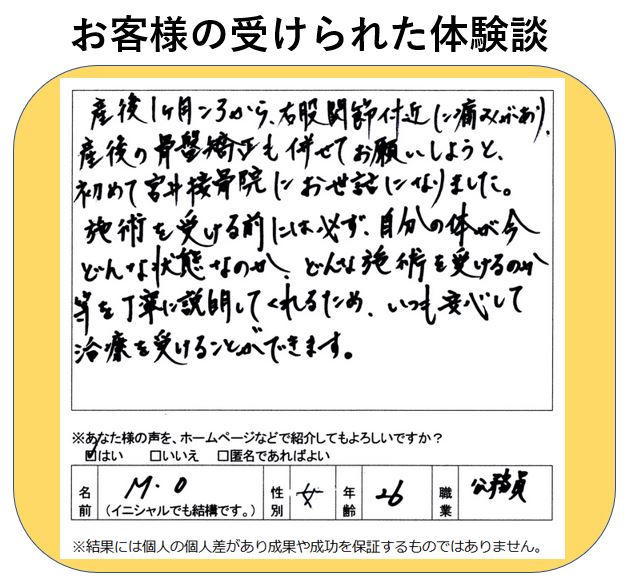 お客様の受けられた体験談
産後1ヶ月ごろから、右股関節付近に痛みがあり、
産後の骨盤矯正も併せてお願いしようと、
初めて宮井接骨院にお世話になりました。
施術を受ける前には必ず、自分の体が今
どんな状態なのか、どんな施術を受けるのか
等を丁寧に説明してくれるため、いつも安心して
治療を受けることができます。
※あなた様の声を、ホームページなどで紹介してもよろしいですか？
☑はい □いいえ □匿名であればよい
名前 M・O (イニシャルでも結構です。) 性別 女 年齢 26 職業 公務員
※結果には個人の個人差があり成果や成功を保証するものではありません。